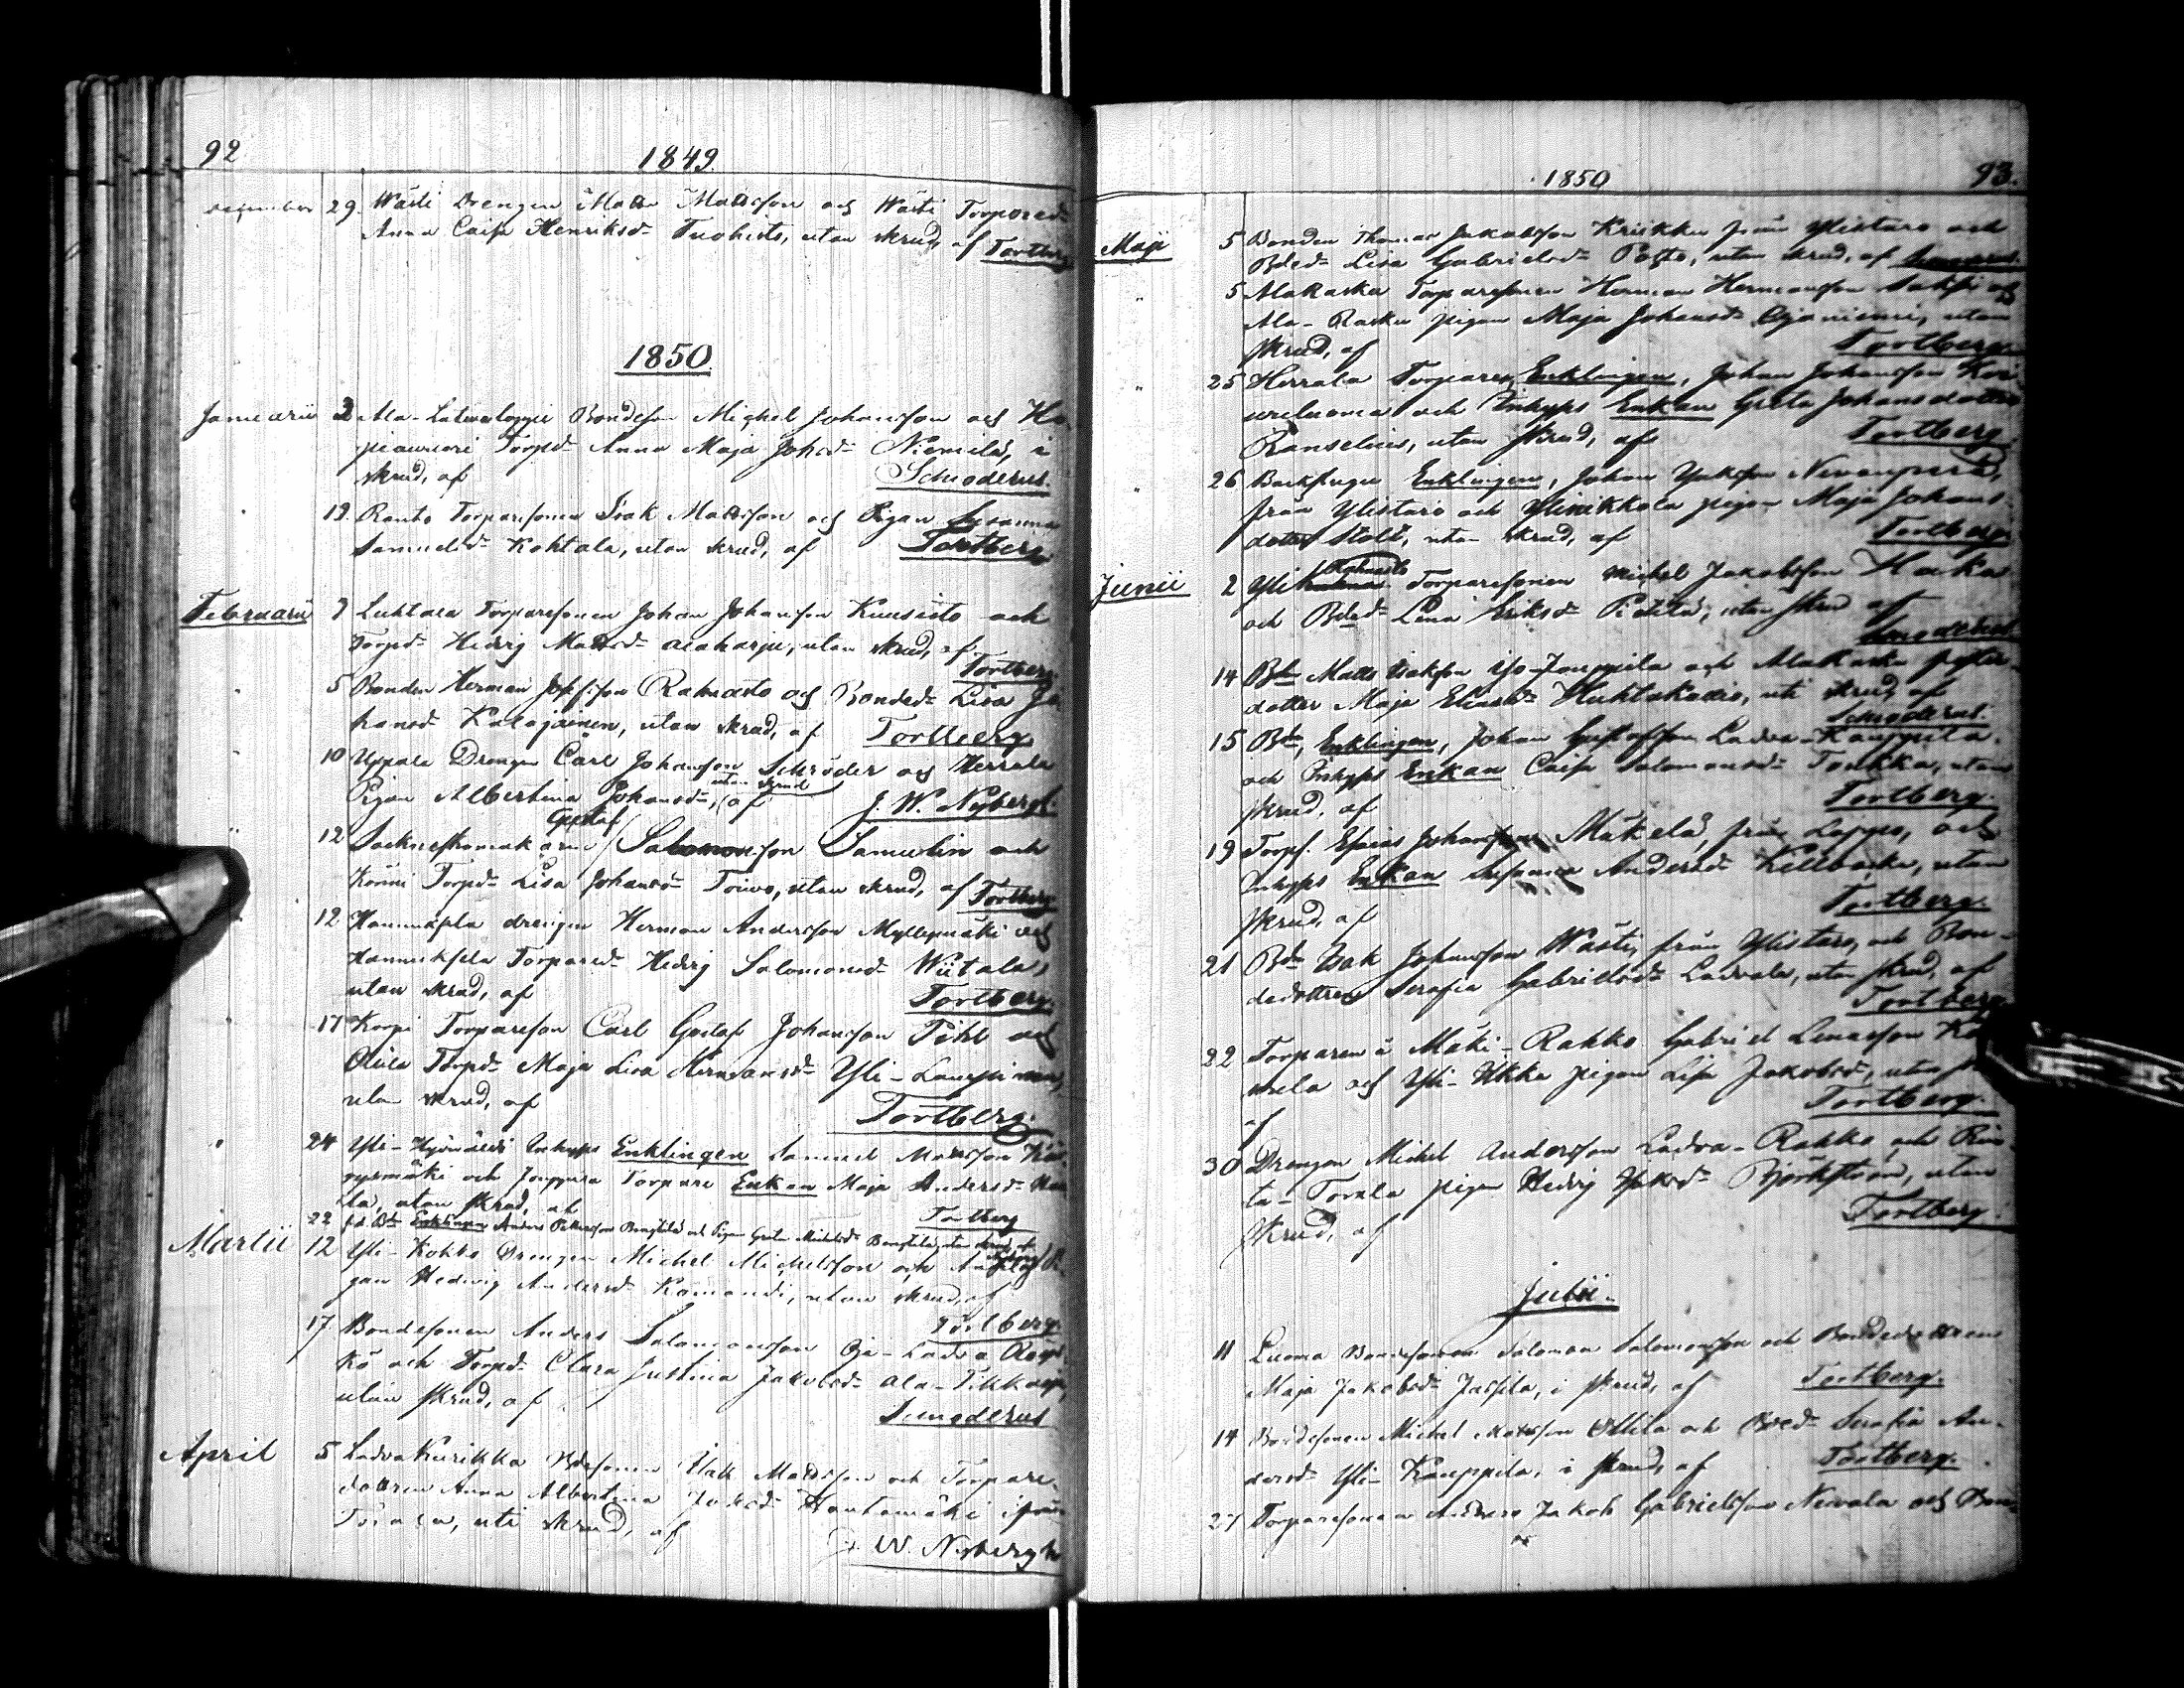 92
1849.
december 29. Wästi Drengen Matts Mattsson och Wästi Torpared:
Anna Caisa Henriksd: Tuohisto, utan skrud, af Tortberg
1850.
Januarii 2 Ala-Latvaloppi Bondeson Michel Johansson och Ha-
pauuori Torpd: Anna Maja Johsd: Niemelä, i
skrud, af Schroderus.
19. Ranto Torparesonen Isak Mattsson och Pigan Susanna
Samuelsd: Kohtala, utan skrud, af Tortberg
Februarii 3 Luhtara Torparesonen Johan Johansson Kuusisto och
Torpd: Hedvig Mattsd: Alaharju, utan skrud, af
Tortberg.
5 Bonden Herman Josefsson Rahnasto och Bonded: Lisa Jo-
hansd: Kalajainen, utan skrud, af Tortberg.
10 Uppala Drengen Carl Johansson Schröder och Herrala
Pigan Albertina Johansd:, utan skrud af J. W. Nybergh.
12 Sockneskomakaren Gustaf Salomonsson Samulin och
Könni Torpd: Lisa Johansd: Toivo, utan skrud, af Tortberg
12 Hannuksela drengen Herman Andersson Myllymäki och
Hannuksela Torpared: Hedvig Salomonsd: Wiitala,
utan skrud, af Tortberg.
17 Korpi Torpareson Carl Gustaf Johansson Pihl och
Torpd: Maja Lisa Hermansd: Yli-
utan skrud, af Tortberg.
24 Yli- Inhyses Enklingen Samuel Mattsson
mäki och Jouppila Torpare Enkan Maja Andersd:
utan skrud, af Tortberg
22 Enklingen Anders och Pigan Greta Michelsd: utan skrud, af
Nybergh
Martii 12 Yli-Kokko Drengen Michel Michelsson och Pi-
gan Hedwig Andersd: Komandi, utan skrud, af
Tortberg.
17 Bondesonen Anders Salomonsson Oja-Ladva
och Torpd: Clara Justina Jakobsd: Ala-
utan skrud, af Schroderus
April 5 Ladva Kurikka Bdesonen Isak Mattsson och Torpare-
dottren Anna Albertina Jakobsd: Hautamäki ifrån
Törnävä, uti skrud, af
J. W. Nybergh
1850
93.
Maji 5 Bonden Thomas Jakobsson Kriikku från Ylistaro och
Bded: Lisa Gabrielsd: Pohto, utan skrud, af
5 Alakaska Torparesonen Herman Hermansson och
Ala-Rasku pigan Maja Johansd: Ojaniemi, utan
skrud, af Tortberg.
25 Herrala Torparen, Enklingen, Johan Johansson
och Inhyses Enkan Greta Johansdotter
Ranselius, utan skrud, af Tortberg
26 Enklingen, Johan Isaksson Nevanperä,
från Ylistaro och Ylinikkola pigan Maja Johans-
dotter Stolt, utan skrud, af Tortberg.
Junii 2 Yli Torparesonen Michel Jakobsson Haka
och Bded: Lena Eriksd: Pietilä, utan skrud af
Schroderus
14 Bdn Matts Isaksson Iso-Jouppila och Alakaska
dotter Maja Eliaed: Huhtakallio, uti skrud, af
Schroderus.
15 Bdn, Enklingen, Johan Gustafsson Ladva-Kauppila.
och Inhyses Enkan Caisa Salomonsd: Toukka, utan
skrud, af Tortberg.
19 Torps. Esaias Johansson Mäkelä, från Lappo, och
Inhyses Enkan Susanna Andersd: Killbacka, utan
skrud, af Tortberg.
21 Bdn Isak Johansson Wästi, från Ylistaro, och Bon-
dedottren Serafia Gabrielsd: Ladvala, utan skrud, af
Tortberg
22 Torparen å Mäki-Rakko Gabriel
och Yli-Ukko pigan Lisa Jakobsd:, utan
af Tortberg.
30 Drengen Michel Andersson Ladva-Rakko, och Rin-
ta-Torala pigan Hedvig Isaksd: Björkström, utan
skrud, af Tortberg.
Julii.
11 Luoma Bondesonen Salomon Salomonsson och Bondedottren
Maja Jakobsd: Jaskila, i skrud, af Tortberg.
14 Bondesonen Michel Mattsson Ollila och Bded: Serafia An-
dersd: Yli-Kauppila, i skrud, af Tortberg.
27 Torparesonen Anders Jakob Gabrielsson Nevala och Bon-